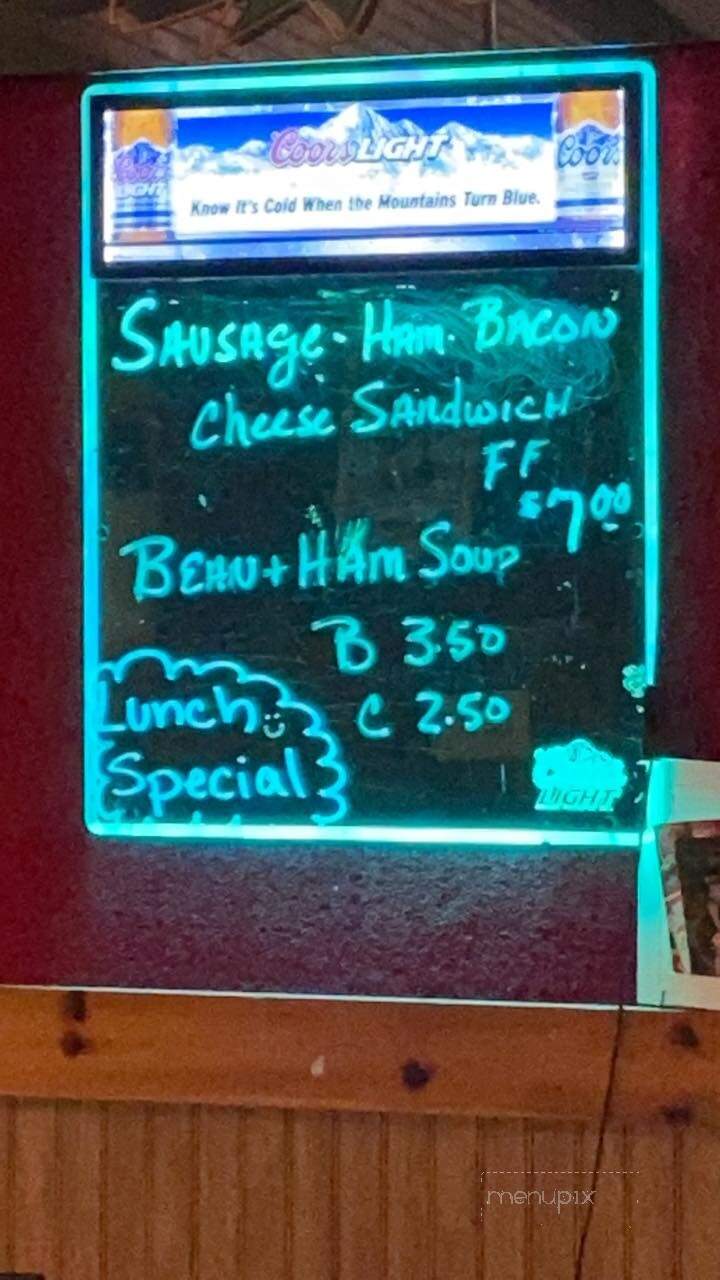 Coors LIGHT
Coors LIGHT
Coors
Know It's Cold When the Mountains Turn Blue.
SAUSAGe - HAM - BACON
Cheese SANdwICH
FF
$7.00
BEAN + HAm Soup
B 3.50
C 2.50
Lunch
Special
LIGHT
menupix